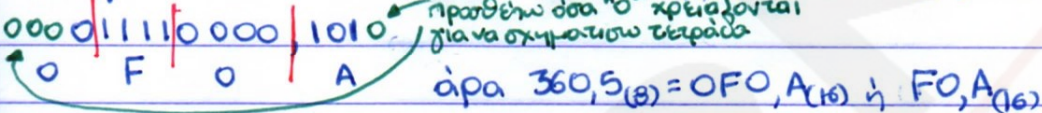 0000|1111|0000,|1010 προσθέτω όσα "0" χρειάζονται
για να σχηματίσω τετράδα
0 F 0 A
άρα 360,5(8) = 0F0,A(16) ή F0,A(16)